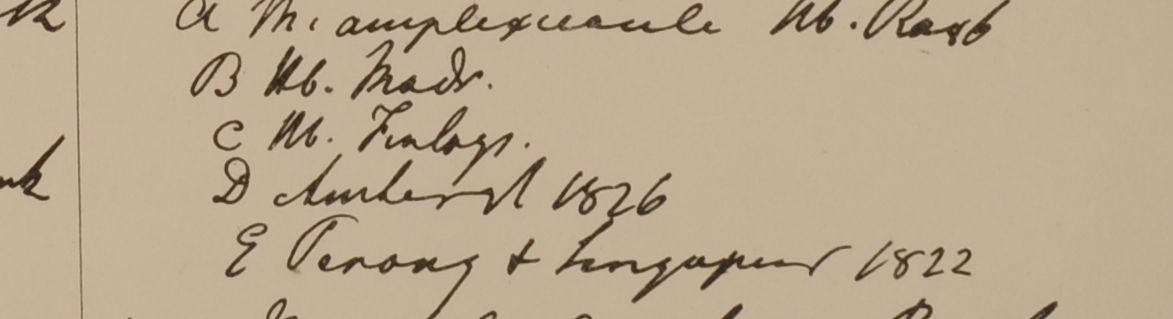 A M. amplexicaule Hb. Roxb
B Hb. Madr.
C Hb. Finlays.
D Amherst 1826
E Penang & Singapur 1822